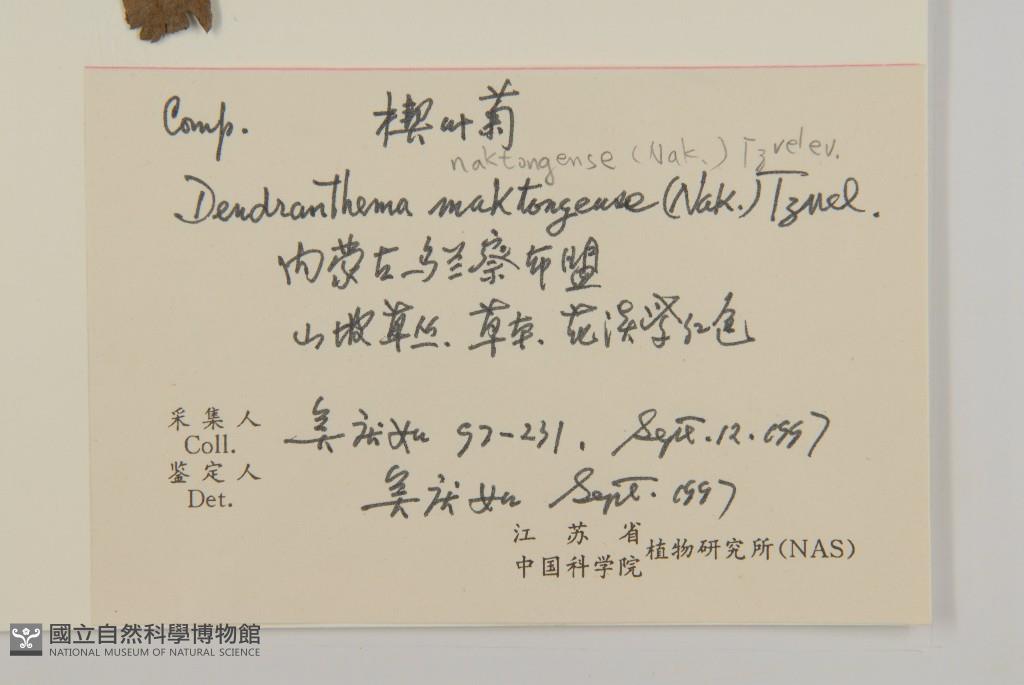 Comp. 楔叶菊
naktongense (Nak.) Tzvelev.
Dendranthema maktongense (Nak.) Tzvel.
内蒙古乌兰察布盟
山坡草丛、草本、花淡紫红色
采集人 吴庆如 97-231. Sept. 12. 1997
Coll.
鉴定人 吴庆如 Sept. 1997
Det.
江苏省
中国科学院 植物研究所(NAS)
國立自然科學博物館
NATIONAL MUSEUM OF NATURAL SCIENCE